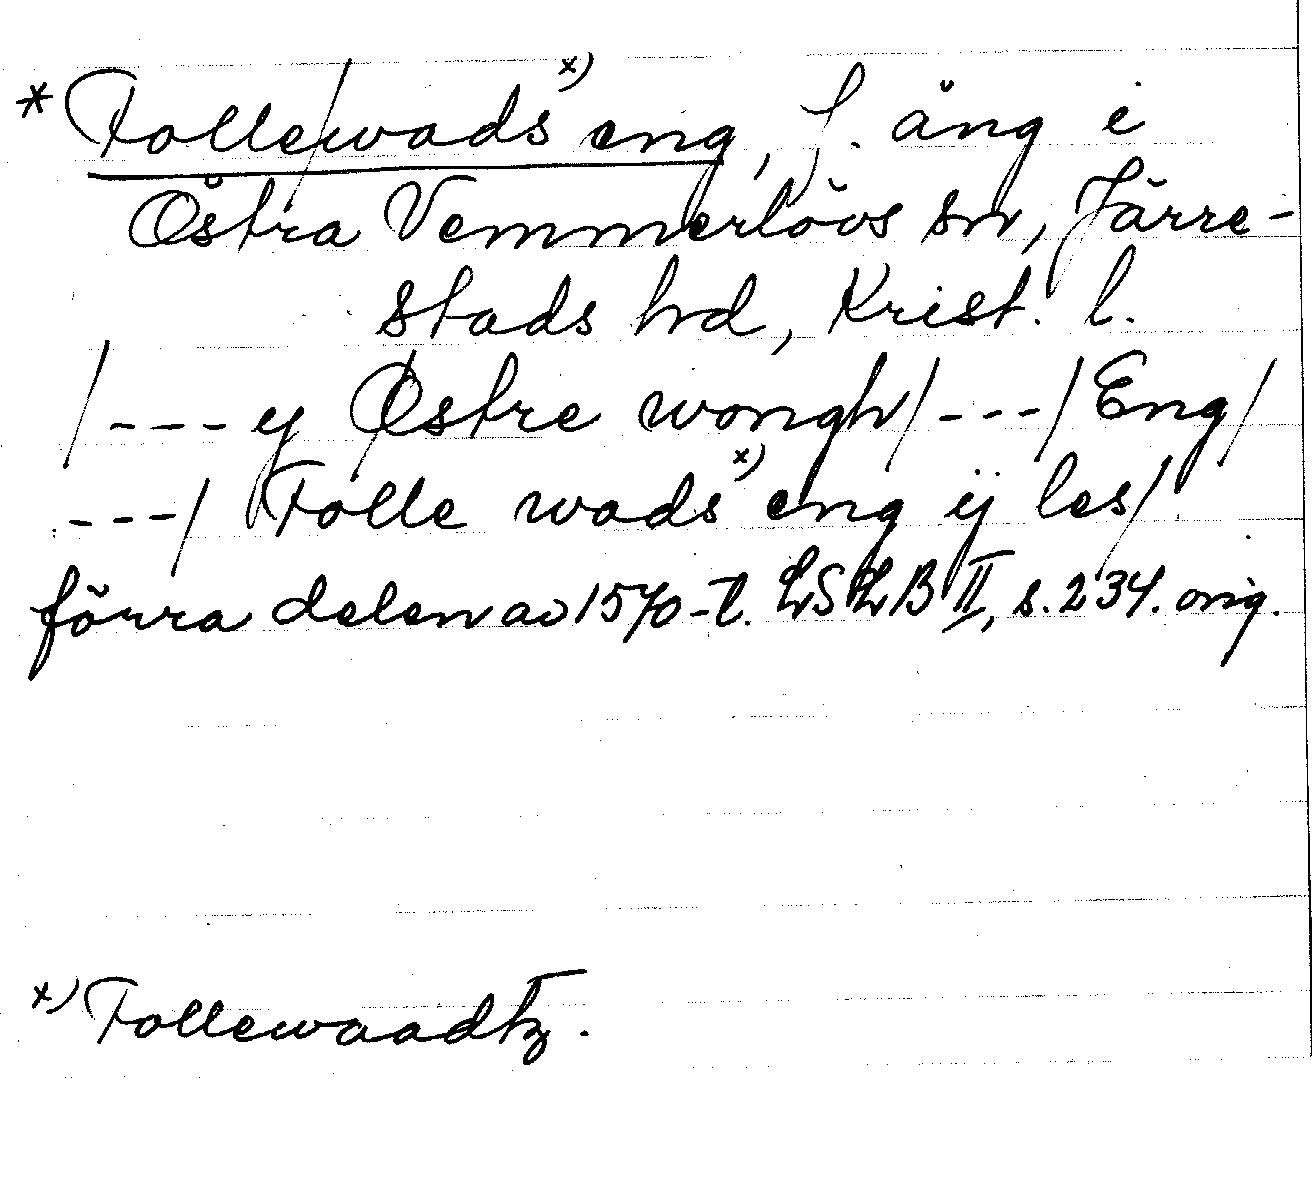 * Follewads x) eng, f. äng i
Östra Vemmerlövs sn, Järre-
stads hd, Krist. l.
/---y Østre wongh/---/Eng/
---/ Folle wads x) eng ij les/
förra delen av 1570-t. LSLB II, s. 234. orig.
x) Follewaadtz.